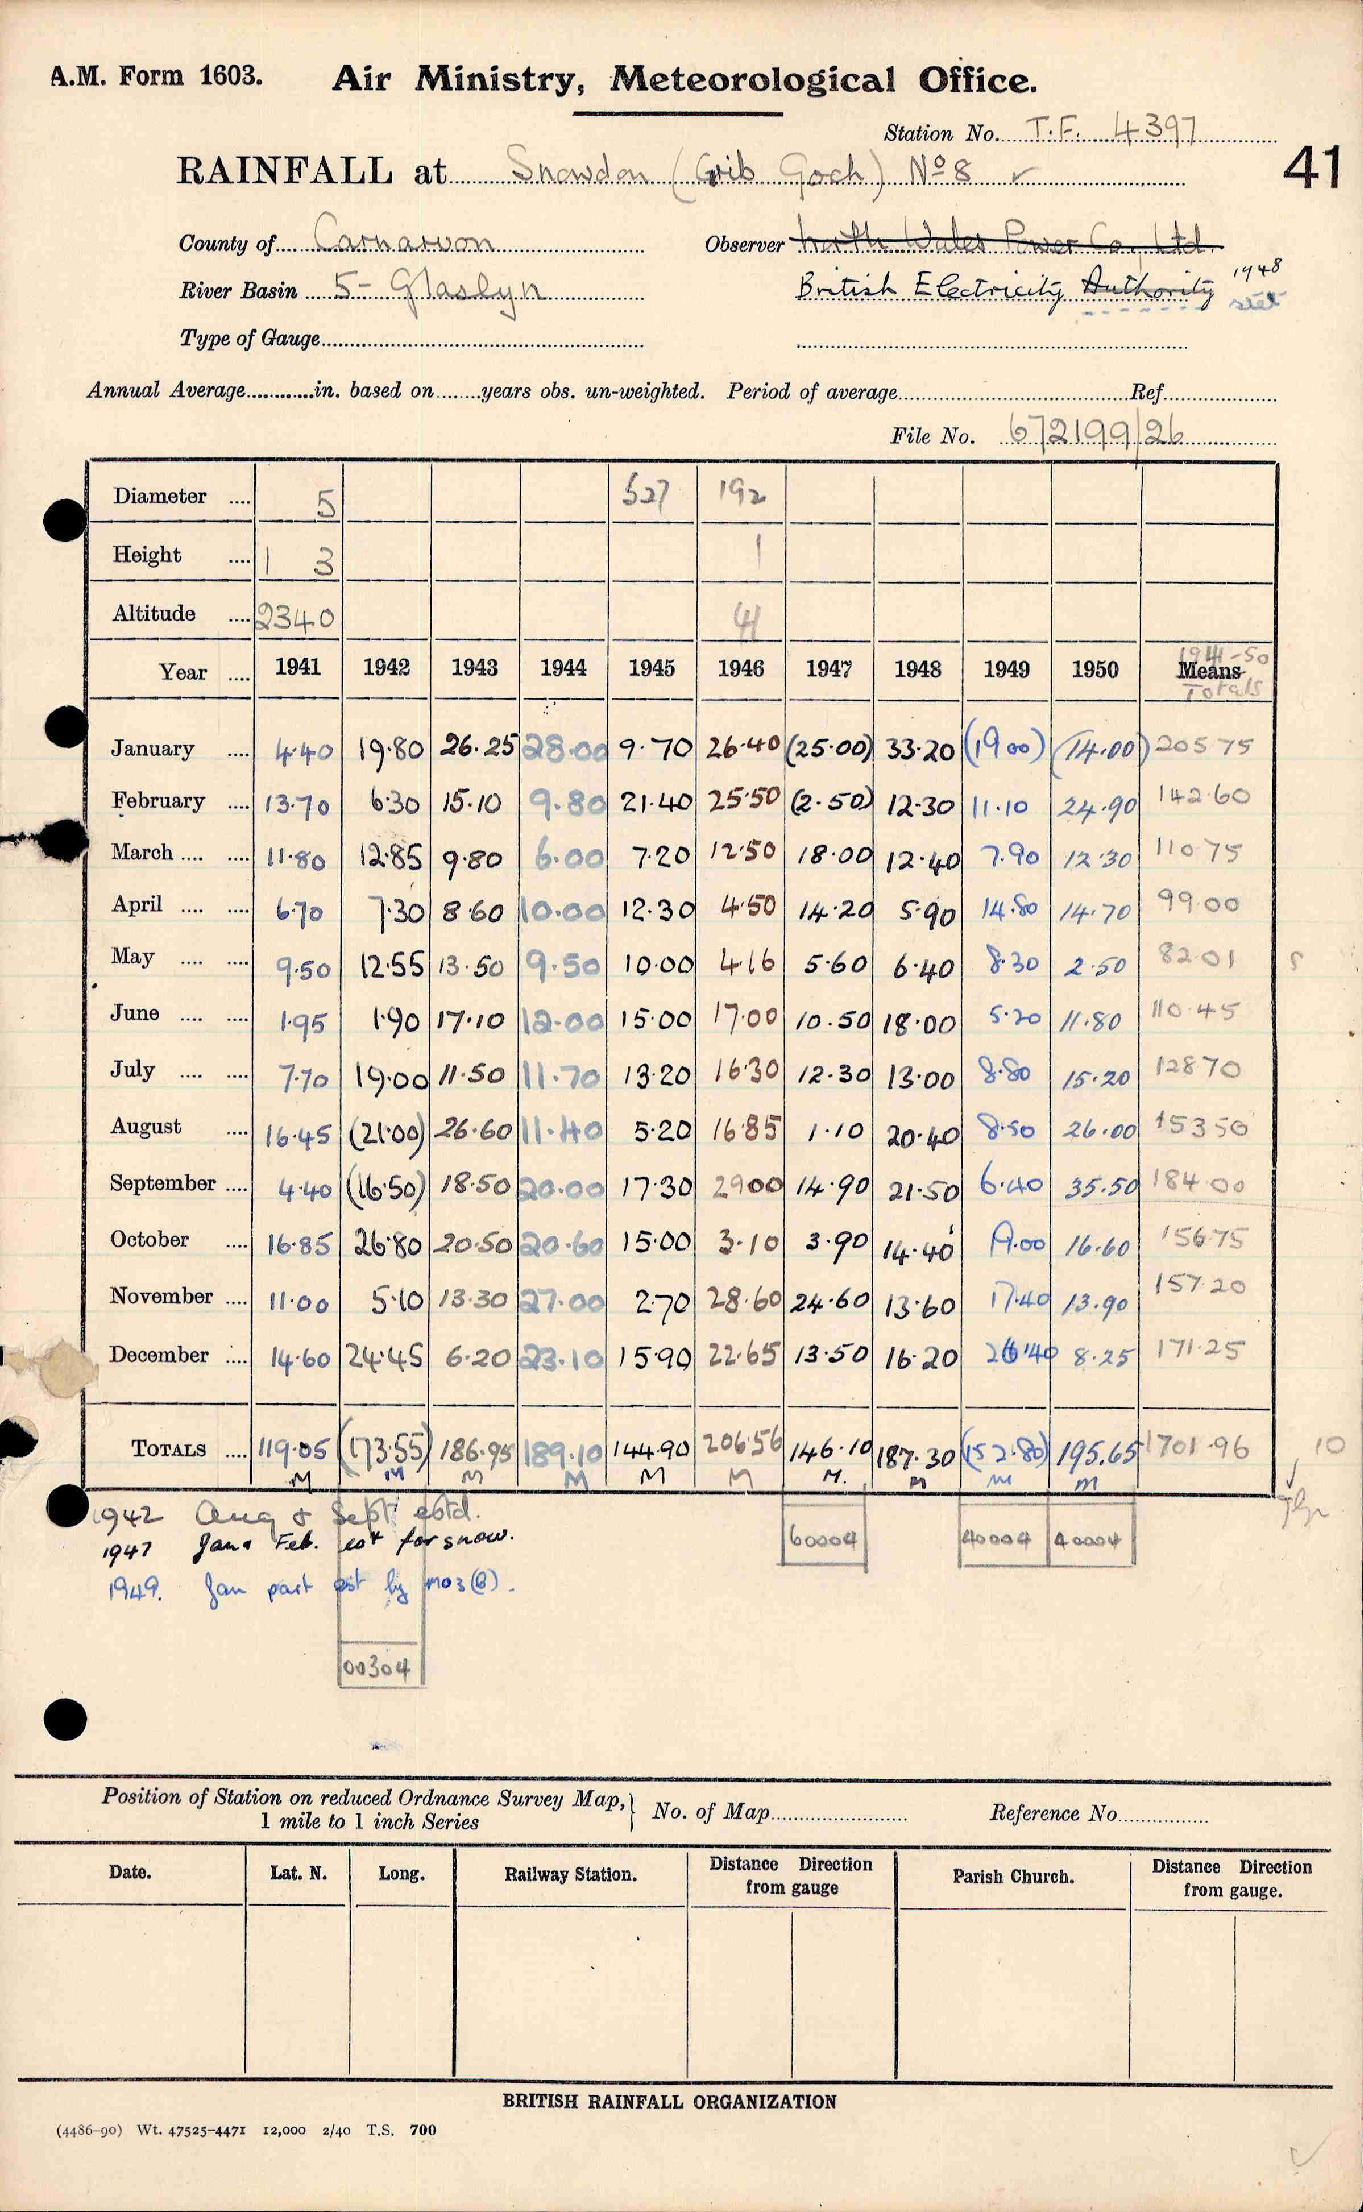 A.M. Form 1603. Air Ministry, Meteorological Office.
Station No. T.F. 4397
RAINFALL at Snowdon (Crib Goch) Nº 8 ✓ 41
County of Carnarvon Observer North Wales Power Co. Ltd.
River Basin 5- Glaslyn British Electricity Authority 1948 stet
Type of Gauge
Annual Average in. based on years obs. un-weighted. Period of average Ref.
File No. 672199/26
Diameter .... 5 527 192
Height .... 1 3 1
Altitude .... 2340 41
Year .... 1941 1942 1943 1944 1945 1946 1947 1948 1949 1950 Means 1941-50 Totals
January .... 4.40 19.80 26.25 28.00 9.70 26.40 (25.00) 33.20 (19.00) (14.00) 205.75
February .... 13.70 6.30 15.10 9.80 21.40 25.50 (2.50) 12.30 11.10 24.90 142.60
March .... .... 11.80 12.85 9.80 6.00 7.20 12.50 18.00 12.40 7.90 12.30 110.75
April .... .... 6.70 7.30 8.60 10.00 12.30 4.50 14.20 5.90 14.80 14.70 99.00
May .... .... 9.50 12.55 13.50 9.50 10.00 4.16 5.60 6.40 8.30 2.50 82.01 5
June .... .... 1.95 1.90 17.10 12.00 15.00 17.00 10.50 18.00 5.20 11.80 110.45
July .... .... 7.70 19.00 11.50 11.70 13.20 16.30 12.30 13.00 8.80 15.20 128.70
August .... 16.45 (21.00) 26.60 11.40 5.20 16.85 1.10 20.40 8.50 26.00 153.50
September .... 4.40 (16.50) 18.50 20.00 17.30 29.00 14.90 21.50 6.40 35.50 184.00
October .... 16.85 26.80 20.50 20.60 15.00 3.10 3.90 14.40 19.00 16.60 156.75
November .... 11.00 5.10 13.30 27.00 2.70 28.60 24.60 13.60 17.40 13.90 157.20
December .... 14.60 24.45 6.20 23.10 15.90 22.65 13.50 16.20 26.40 8.25 171.25
TOTALS .... 119.05 (173.55) 186.95 189.10 144.90 206.56 146.10 187.30 (152.80) 195.65 1701.96 10
M M M M M M M. M M M
1942 Aug & Sept estd.
1947 Jan & Feb. est for snow. 60004 40004 40004
1949. Jan part est by MO3(B).
00304
Position of Station on reduced Ordnance Survey Map, 1 mile to 1 inch Series No. of Map Reference No.
Date. Lat. N. Long. Railway Station. Distance Direction from gauge Parish Church. Distance Direction from gauge.
BRITISH RAINFALL ORGANIZATION
(4486-90) Wt. 47525-4471 12,000 2/40 T.S. 700